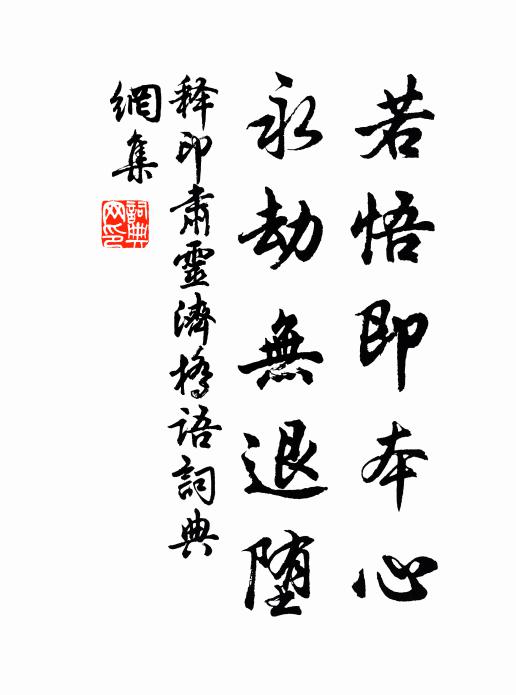 若悟即本心
永劫無退堕
释印肅靈濟橋语詞典
網集
詞典网印